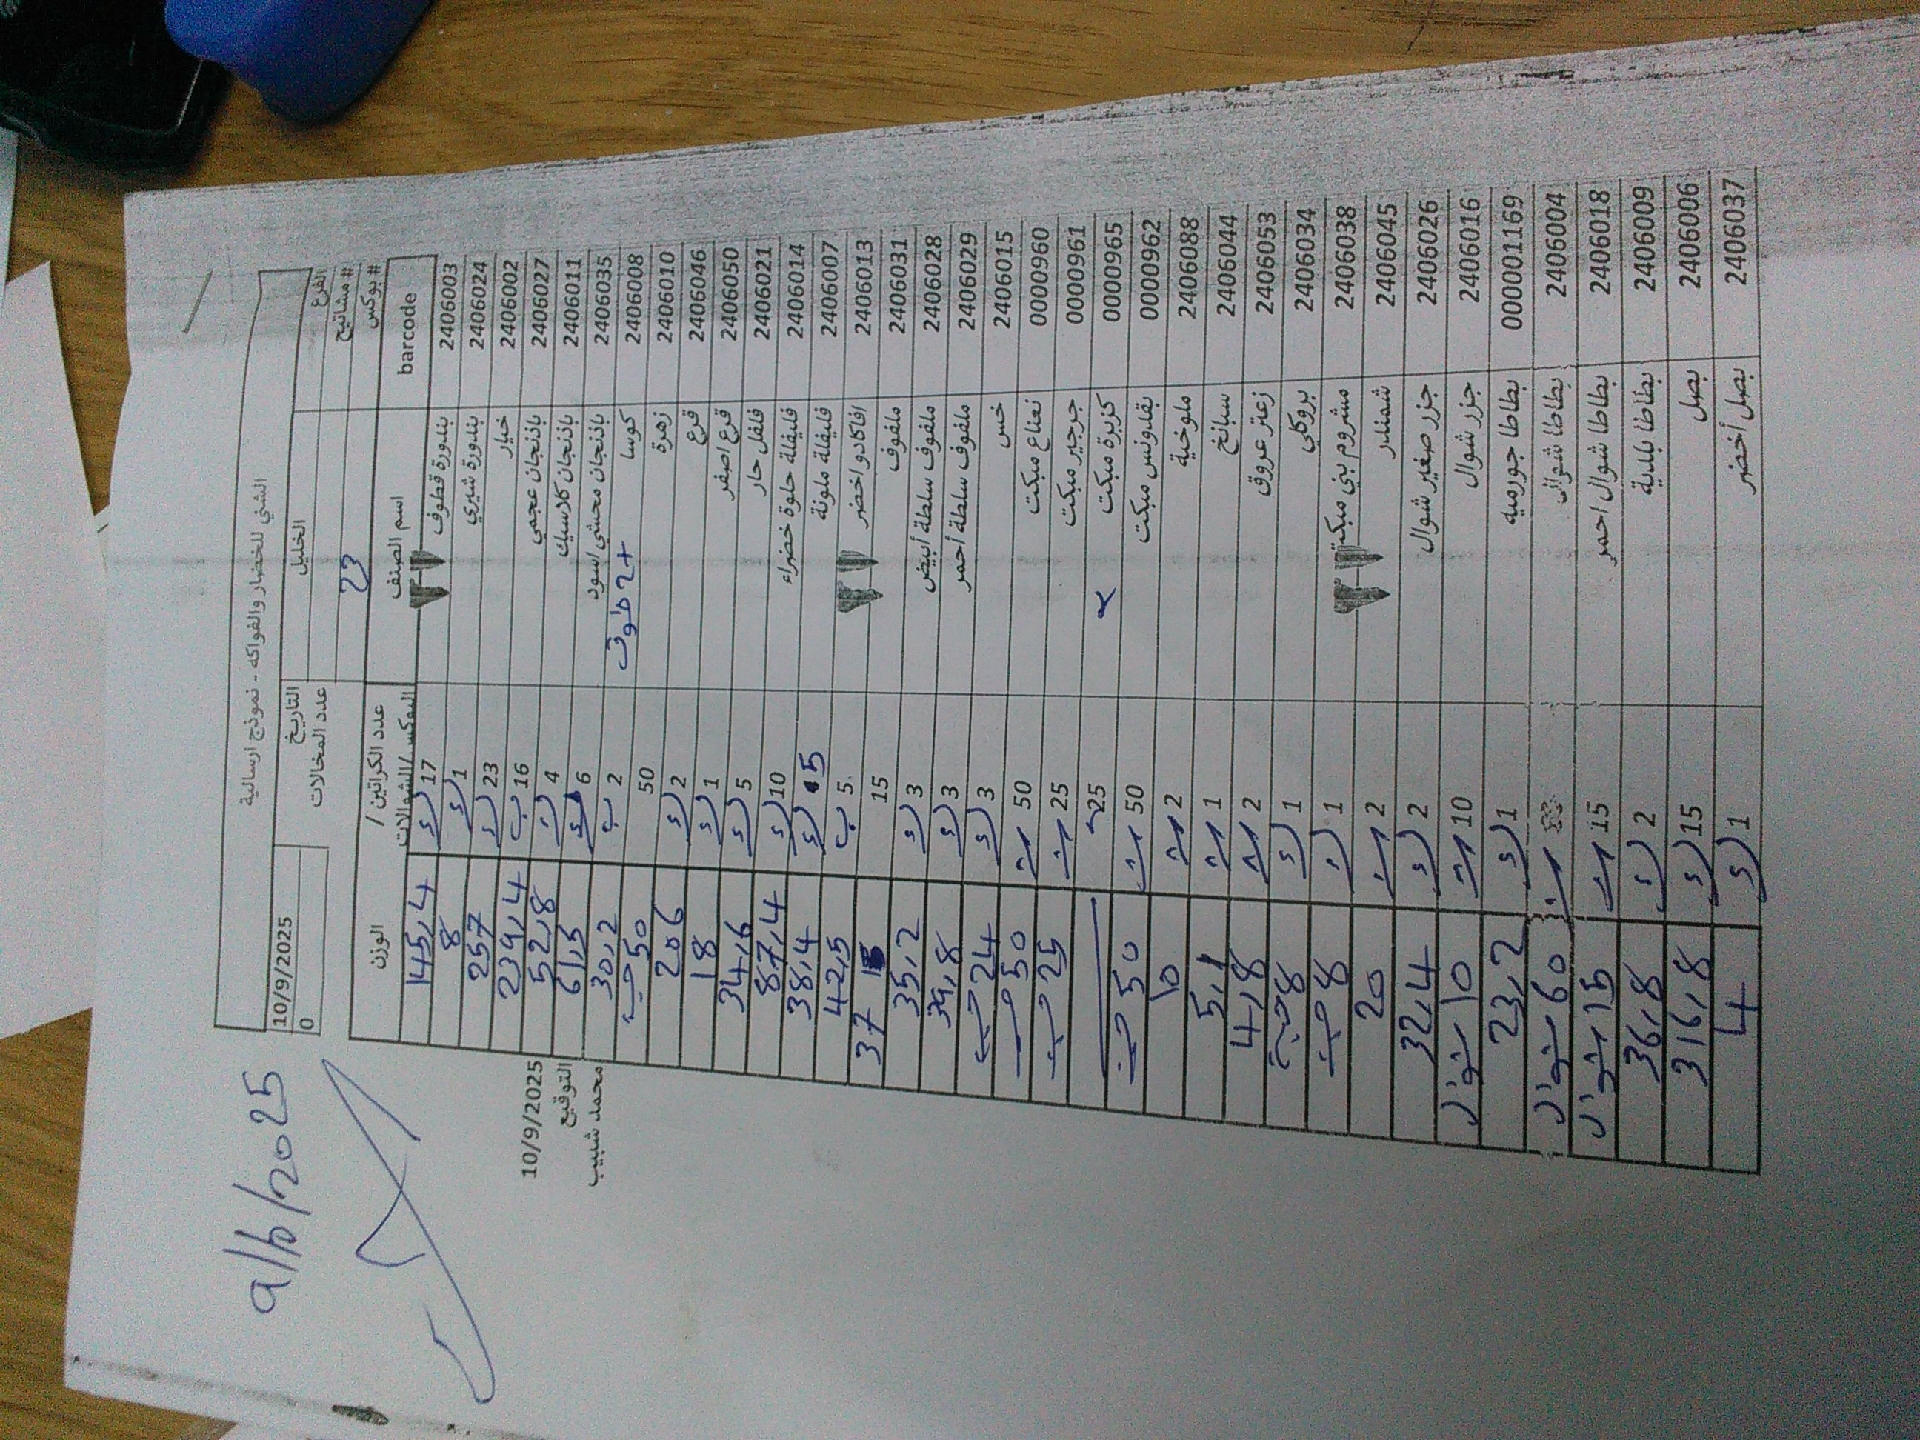 الشني للخضار والفواكه - نموذج ارسالية
الفرع الخليل التاريخ 10/9/2025
# مشاتيح عدد المخالات 0
# بوكس 23
barcode اسم الصنف عدد الكراتين / البوكس/الشوالات الوزن
2406003 بندورة قطوف 17 145,4
2406024 بندورة شيري 1 8
2406002 خيار 23 257
2406027 باذنجان عجمي 16 239,4
2406011 باذنجان كلاسيك 4 52,8
2406035 باذنجان محشي اسود 6 61,5
2406008 كوسا +2 طوف 2 30,2
2406010 زهرة 50 50 حبة
2406046 قرع 2 20,6
2406050 قرع اصفر 1 18
2406021 فلفل حار 5 34,6
2406014 فليفلة حلوة خضراء 10 87,4
2406007 فليفلة ملونة 5 38,4
2406013 افاكادو اخضر 5 42,5
2406031 ملفوف 15 37
2406028 ملفوف سلطة أبيض 3 35,2
2406029 ملفوف سلطة أحمر 3 39,8
2406015 خس 3 24 حبة
0000960 نعناع مبكت 50 50 حبة
0000961 جرجير مبكت 25 25 حبة
0000965 كزبرة مبكت x 25
0000962 بقدونس مبكت 50 50 حبة
2406088 ملوخية 2 10
2406044 سبانخ 1 5,1
2406053 زعتر عروق 2 4,8
2406034 بروكلي 1 8 حبة
2406038 مشروم بني مبكت 1 8 حبة
2406045 شمندر 2 20
2406026 جزر صغير شوال 2 32,4
2406016 جزر شوال 10 10 شوال
000001169 بطاطا جورميه 1 23,2
2406004 بطاطا شوال 60 شوال
2406018 بطاطا شوال احمر 15 15 شوال
2406009 بطاطا بلدية 2 36,8
2406006 بصل 15 316,8
2406037 بصل أخضر 1 4
10/9/2025
التوقيع
محمد شبيب
9/10/2025